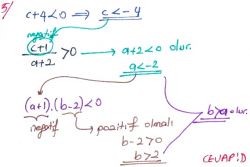 5/
c+4<0 ⟹ c<-4
negatif
c+1/a+2 >0 → a+2<0 olur.
a<-2
(a+1).(b-2)<0
negatif pozitif olmalı
b-2>0
b>2
b>a olur.
CEVAP: D